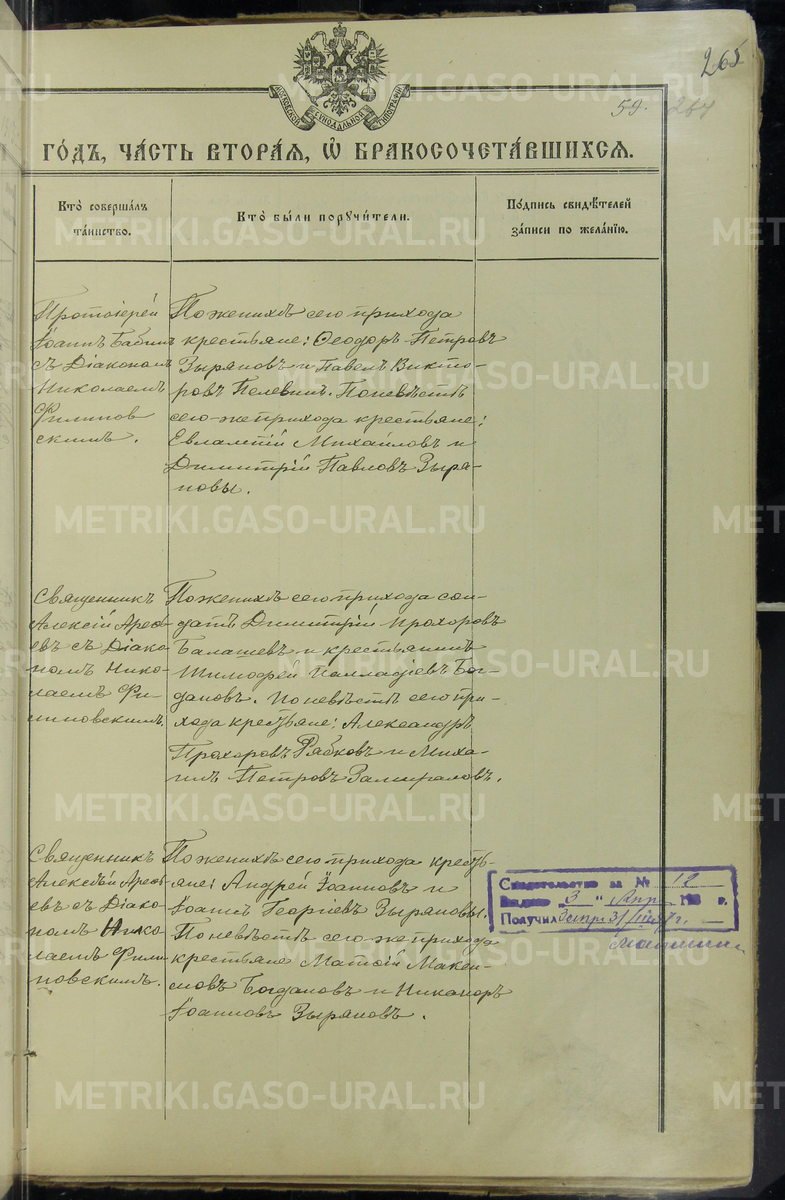 265
59.
267
МОСКОВСКОЙ СѴНОДАЛЬНОЙ ТИПОГРАФІИ
ГО́ДЪ, ЧА́СТЬ ВТОРА́Я, Ѡ҆ БРАКОСОЧЕТА́ВШИХСЯ.
Кто̀ соверша́лъ
та́инство.
Кто̀ бы́ли порꙋчи́тели.
По́дпись свидѣ́телей
за́писи по жела́нїю.
Протоіерей
Іоаннъ Бабинъ
съ Діакономъ
Николаемъ
Филипов
скимъ.
По женихѣ сего прихода
крестьяне: Ѳеодоръ Петровъ
Зыряновъ и Павелъ Викто-
ровъ Пелевинъ. По невѣстѣ
сего-же прихода крестьяне:
Евлампій Михайловъ и
Димитрій Павловъ Зыря-
новы.
Священникъ
Алексій Арефь
евъ съ Діако
номъ Нико-
лаемъ Фи-
липовскимъ.
По женихѣ сего прихода сол-
датъ Димитрій Прохоровъ
Балашевъ и крестьянинъ
Тимофей Палладіевъ Бог-
дановъ. По невѣстѣ сего при-
хода крестьяне: Александръ
Прохоровъ Рябковъ и Миха-
илъ Петровъ Замираловъ.
Священникъ
Алексѣй Арефь
евъ съ Діако-
номъ Нико
лаемъ Фили
повскимъ.
По женихѣ сего прихода кресть-
яне: Андрей Іоанновъ и
Іоаннъ Георгіевъ Зыряновы.
По невѣстѣ сего же прихода
крестьяне Матѳій Макси-
мовъ Богдановъ и Никаноръ
Іоанновъ Зыряновъ.
Свидетельство за № 12
Выдано 3 " Апр 193 г.
Получил
METRIKI.GASO-URAL.RU